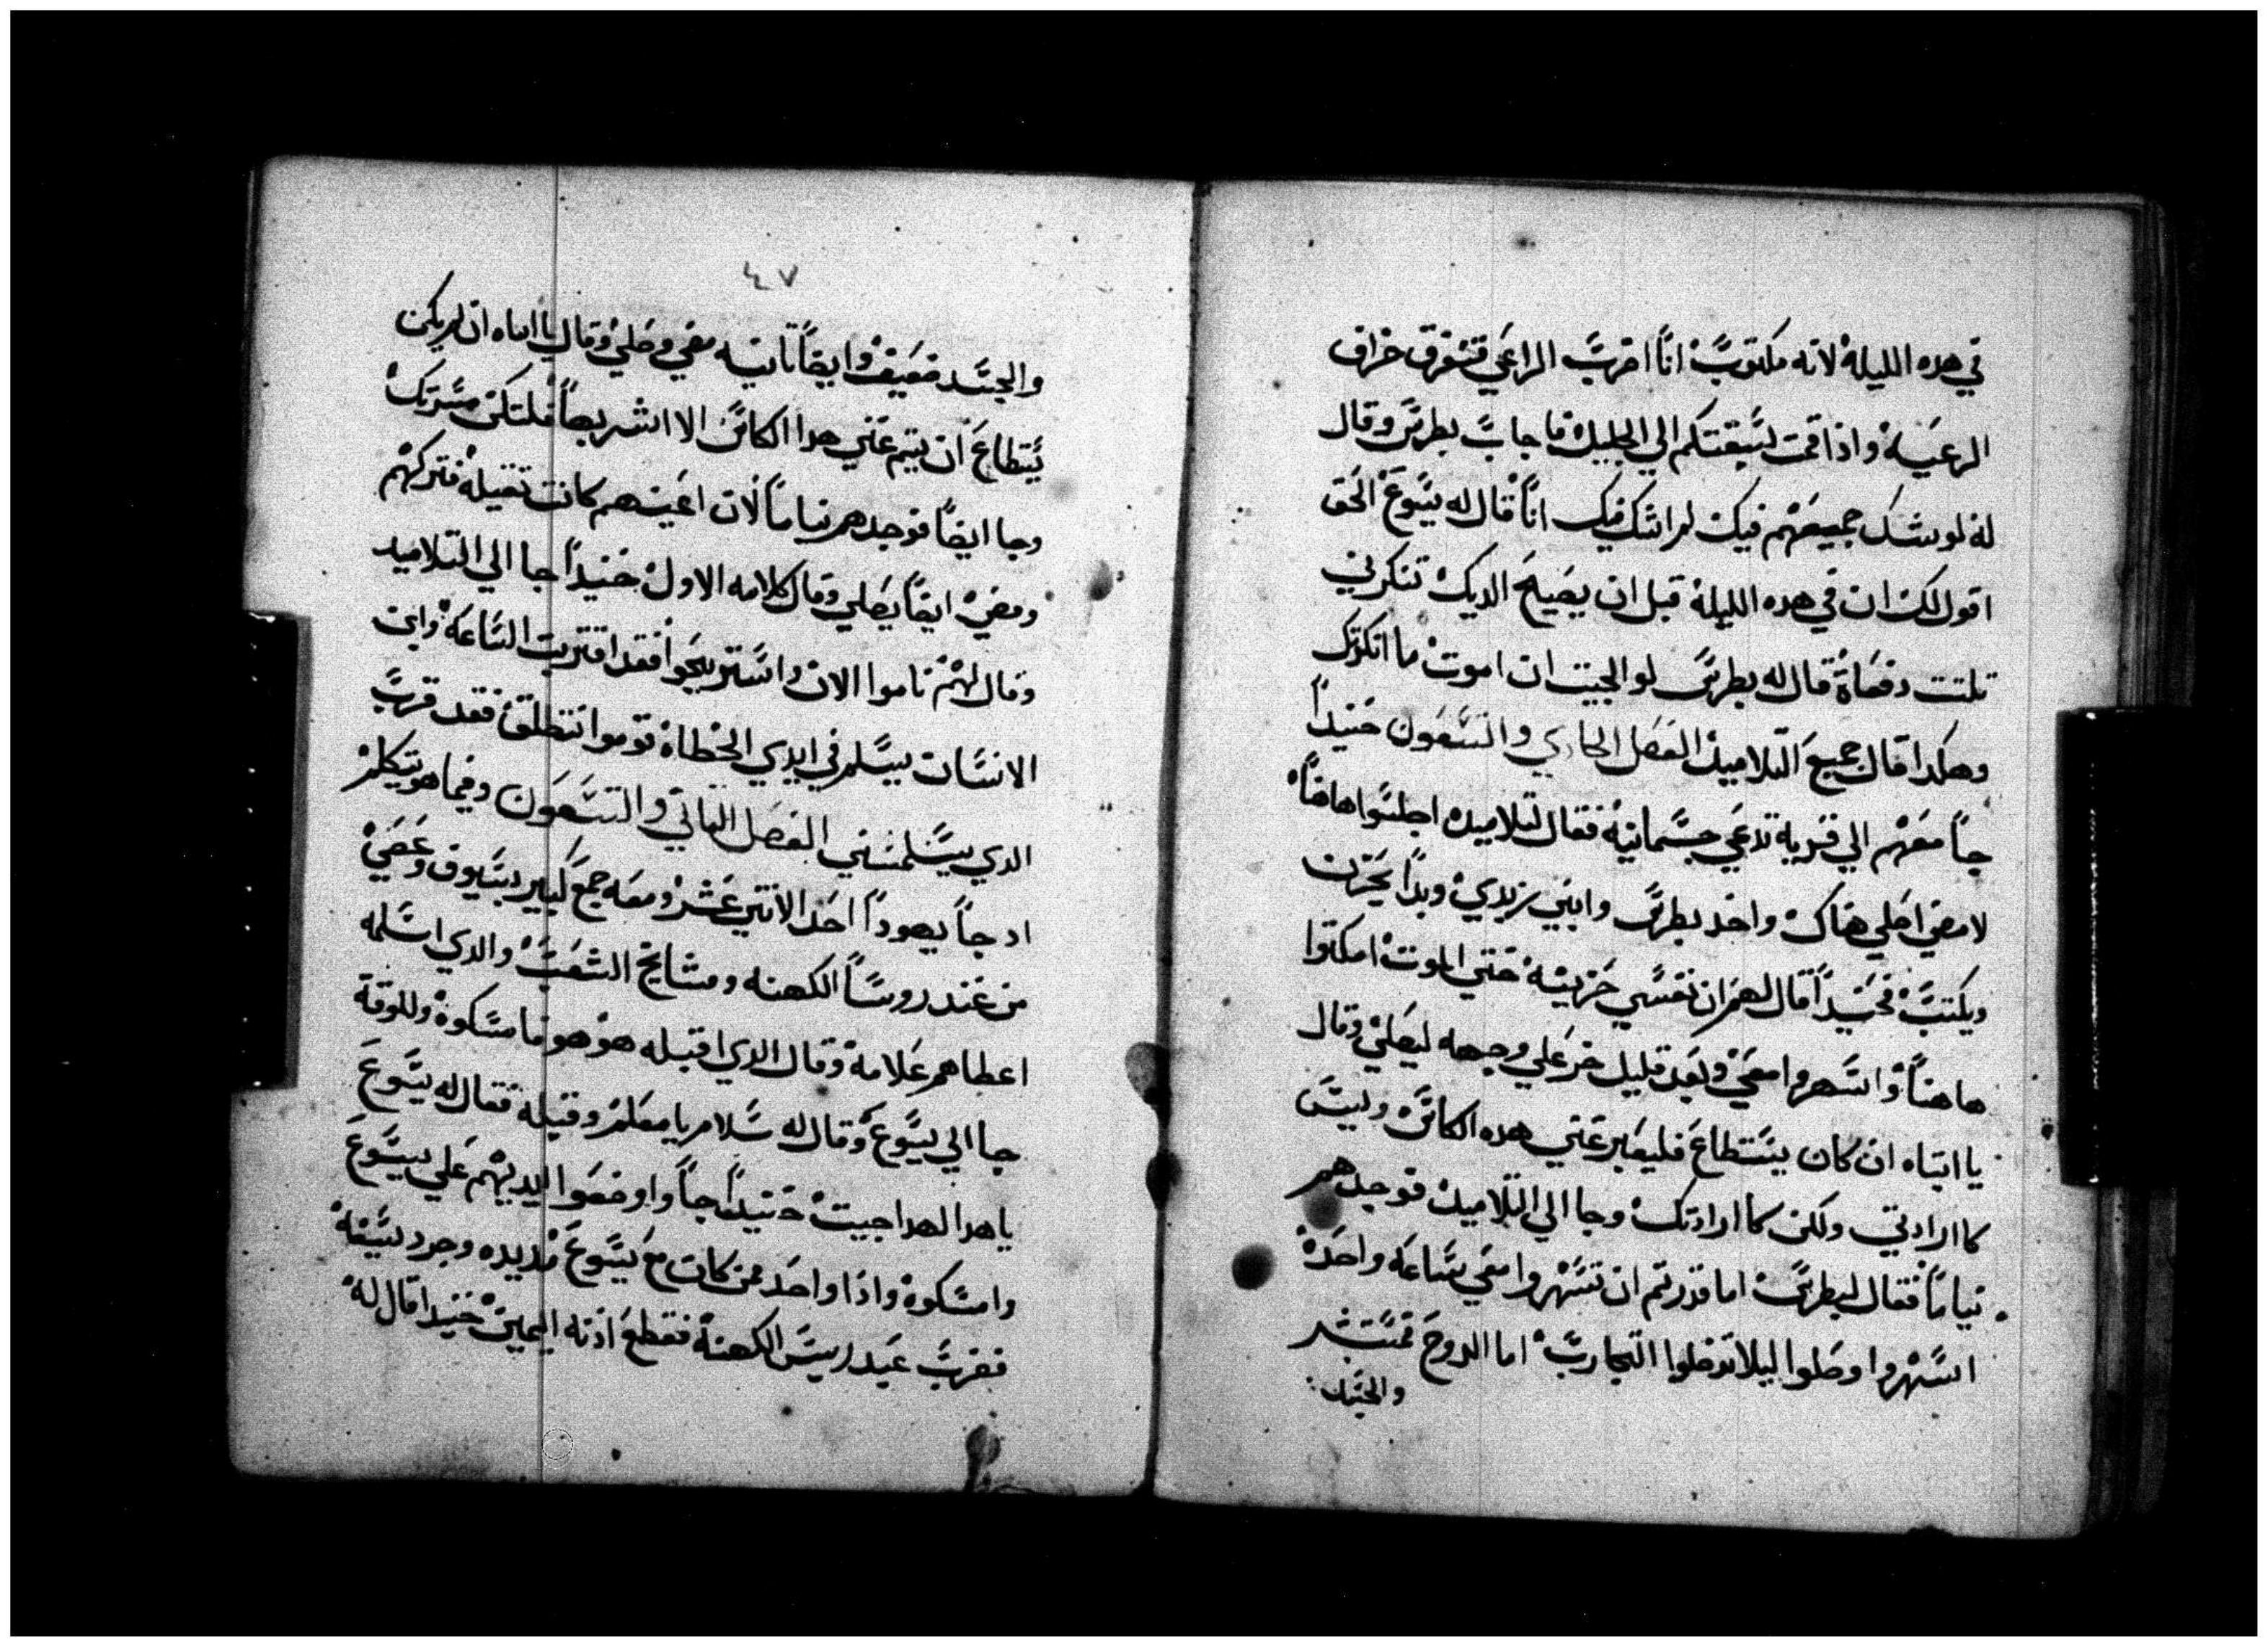 في هده الليلة لانه مكتوب انا اضرب الراعي فتفرق خراف
الرعية واذا قمت لسبقتكم الي الجليل فاجاب بطرس وقال
له لو شك جميعهم فيك لم اشك فيك انا قال له يسوع الحق
اقول لك ان في هده الليلة قبل ان يصيح الديك تنكرني
تلتت دفعاة قال له بطرس لو الجيت ان اموت ما انكرتك
وهكدا قال جميع التلاميد الفصل الحادي والتسعون حنيدا
جا معهم الي قرية تدعي جسمانية فقال لتلاميده اجلسوا هاهنا
لامضي اصلي هناك واخد بطرس وابني زبدي وبدا يحزن
ويكتب فحنيدا قال لهم ان نفسي حزينة حتي الموت امكتوا
هاهنا واسهروا معي وبعد قليل خر علي وجهه ليصلي وقال
يا ابتاه ان كان يستطاع فليعبر عني هده الكاس وليس
كاارادتي ولكن كاارادتك وجا الي التلاميد فوجدهم
نياما فقال لبطرس اما قدرتم ان تسهروا معي ساعه واحدة
اسهروا وصلوا ليلا تدخلوا التجارب اما الروح فمستبشر
والجسد
٤٧
والجسد ضعيف وايضا تانيه مضي وصلي وقال يا ابتاه ان لم يكن
يستطاع ان يتم عني هدا الكاس الا اشربها فلتكن مسرتك
وجا ايضا فوجدهم نياما لان اعينهم كانت تقيلة فتركهم
ومضي ايضا يصلي وقال كلامه الاول حنيدا جا الي التلاميد
وقال لهم ناموا الان واستريحوا فقد اقتربت الساعة وابن
الانسان يسلم في ايدي الخطاة قوموا ننطلق فقد قرب
الدي يسلمنني الفصل التاني والتسعون وفيما هو يتكلم
اد جا يهودا احد الاتني عشر ومعه جمع كبير بسيوف وعصي
من عند روسا الكهنه ومشايخ الشعب والدي اسلمه
اعطاهم علامة وقال الدي اقبله هو هو فامسكوة وللوقة
جا الي يسوع وقال له سلام يا معلم وقبله فقال له يسوع
يا هدا لهدا جيت حنيدا جا واوضعوا ايديهم علي يسوع
وامسكوة واذا واحد ممن كان مع يسوع مد يده وجرد سيفة
فضرب عبد ريس الكهنة فقطع اذنه اليمين حنيدا قال له